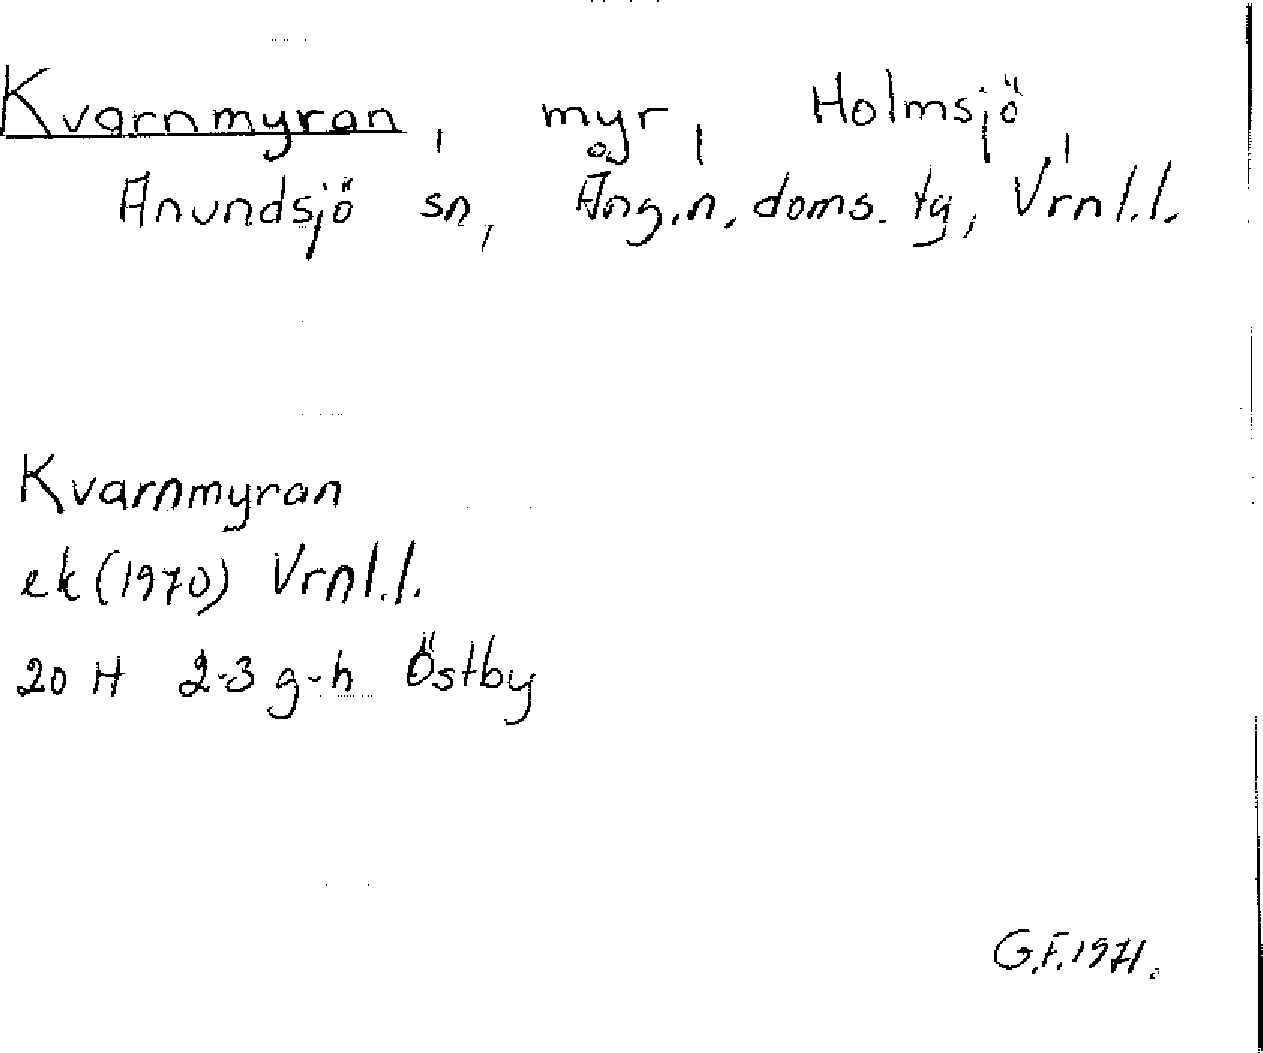 Kvarnmyran, myr, Holmsjö,
Anundsjö sn, Ång.n. doms. tg, Vrnl.l.
Kvarnmyran
ek (1970) Vrnl.l.
20 H 2-3 g-h Östby
G.F. 1971.